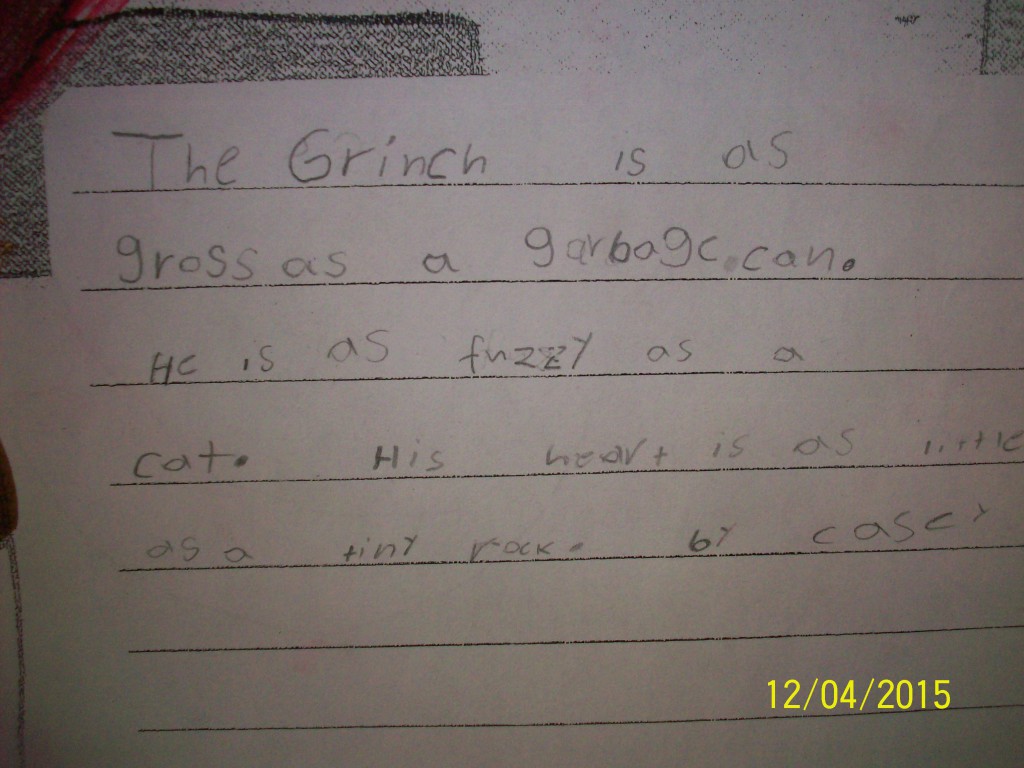 The Grinch is as
gross as a garbage can.
He is as fuzzy as a
cat. His heart is as little
as a tiny rock. by casey
12/04/2015